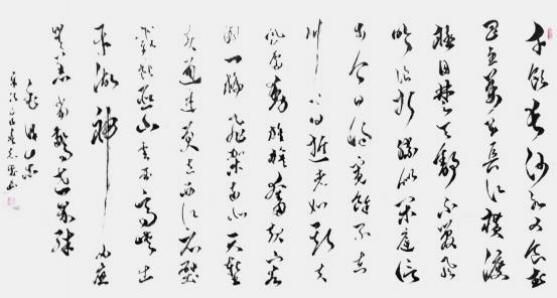 才飲長沙水又食武
昌魚萬里長江橫渡
極目楚天舒不管風
吹浪打勝似閑庭信
步今日得寬餘子在
川上曰逝者如斯夫
風檣動龜蛇靜起宏
圖一橋飛架南北天塹
變通途更立西江石壁
截斷巫山雲雨高峽出
平湖神女應
無恙當驚世界殊